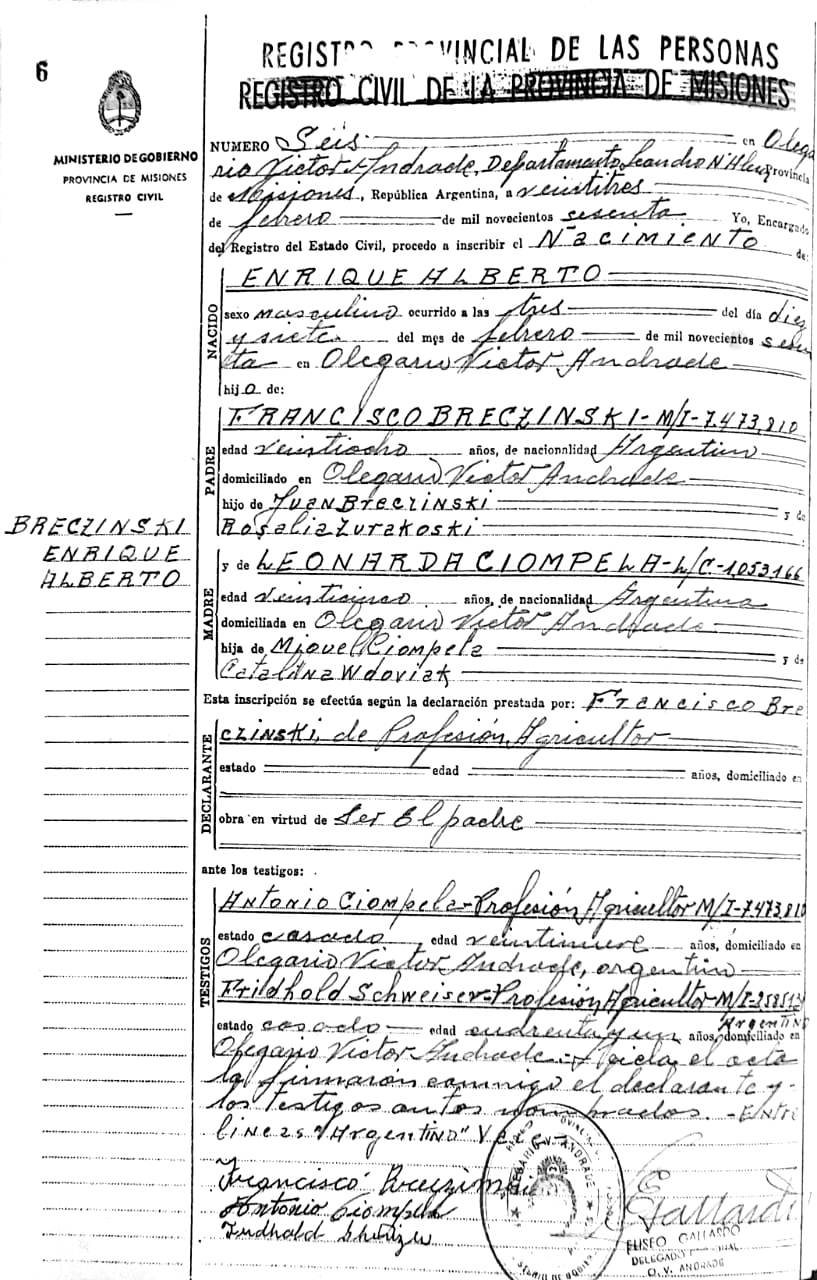 6
MINISTERIO DE GOBIERNO
PROVINCIA DE MISIONES
REGISTRO CIVIL
BRECZINSKI
ENRIQUE
ALBERTO
REGISTRO PROVINCIAL DE LAS PERSONAS
REGISTRO CIVIL DE LA PROVINCIA DE MISIONES
NUMERO Seis en Olega
rio Victor Andrade, Departamento Leandro N Alem Provincia
de Misiones, República Argentina, a veintitres
de febrero de mil novecientos sesenta Yo, Encargado
del Registro del Estado Civil, procedo a inscribir el NACIMIENTO de:
NACIDO
ENRIQUE ALBERTO
sexo masculino ocurrido a las tres del día diez
y siete del mes de febrero de mil novecientos sesen
ta en Olegario Victor Andrade
hijo de:
PADRE
FRANCISCO BRECZINSKI - M/I - 7.473,810
edad veintiocho años, de nacionalidad Argentino
domiciliado en Olegario Victor Andrade
hijo de Juan Breczinski y de
Rosalia Zurakoski
MADRE
y de LEONARDA CIOMPELA - L/C - 1,053,166
edad veinticinco años, de nacionalidad Argentina
domiciliada en Olegario Victor Andrade
hija de Miguel Ciompela y de
Catalina Wdoviak
Esta inscripción se efectúa según la declaración prestada por: Francisco Bre
DECLARANTE
czinski, de Profesión, Agricultor
estado edad años, domiciliado en
obra en virtud de Ser El padre
ante los testigos:
TESTIGOS
Antonio Ciompela - Profesión Agricultor M/I - 7.473,810
estado casado edad veintinueve años, domiciliado en
Olegario Victor Andrade, argentino
Fridhold Schweiser - Profesión Agricultor - M/I
Argentino
estado casado edad cuarenta y un años, domiciliado en
Olegario Victor Andrade. - Leida el acta
la firmarón conmigo el declarante y
los testigos antes nombrados. - Entre
lineas "Argentino" Vale
Francisco Breczinski
Antonio Ciompela
E Gallardo
ELISEO GALLARDO
DELEGADO
O. V. ANDRADE
OLEGARIO V. ANDRADE